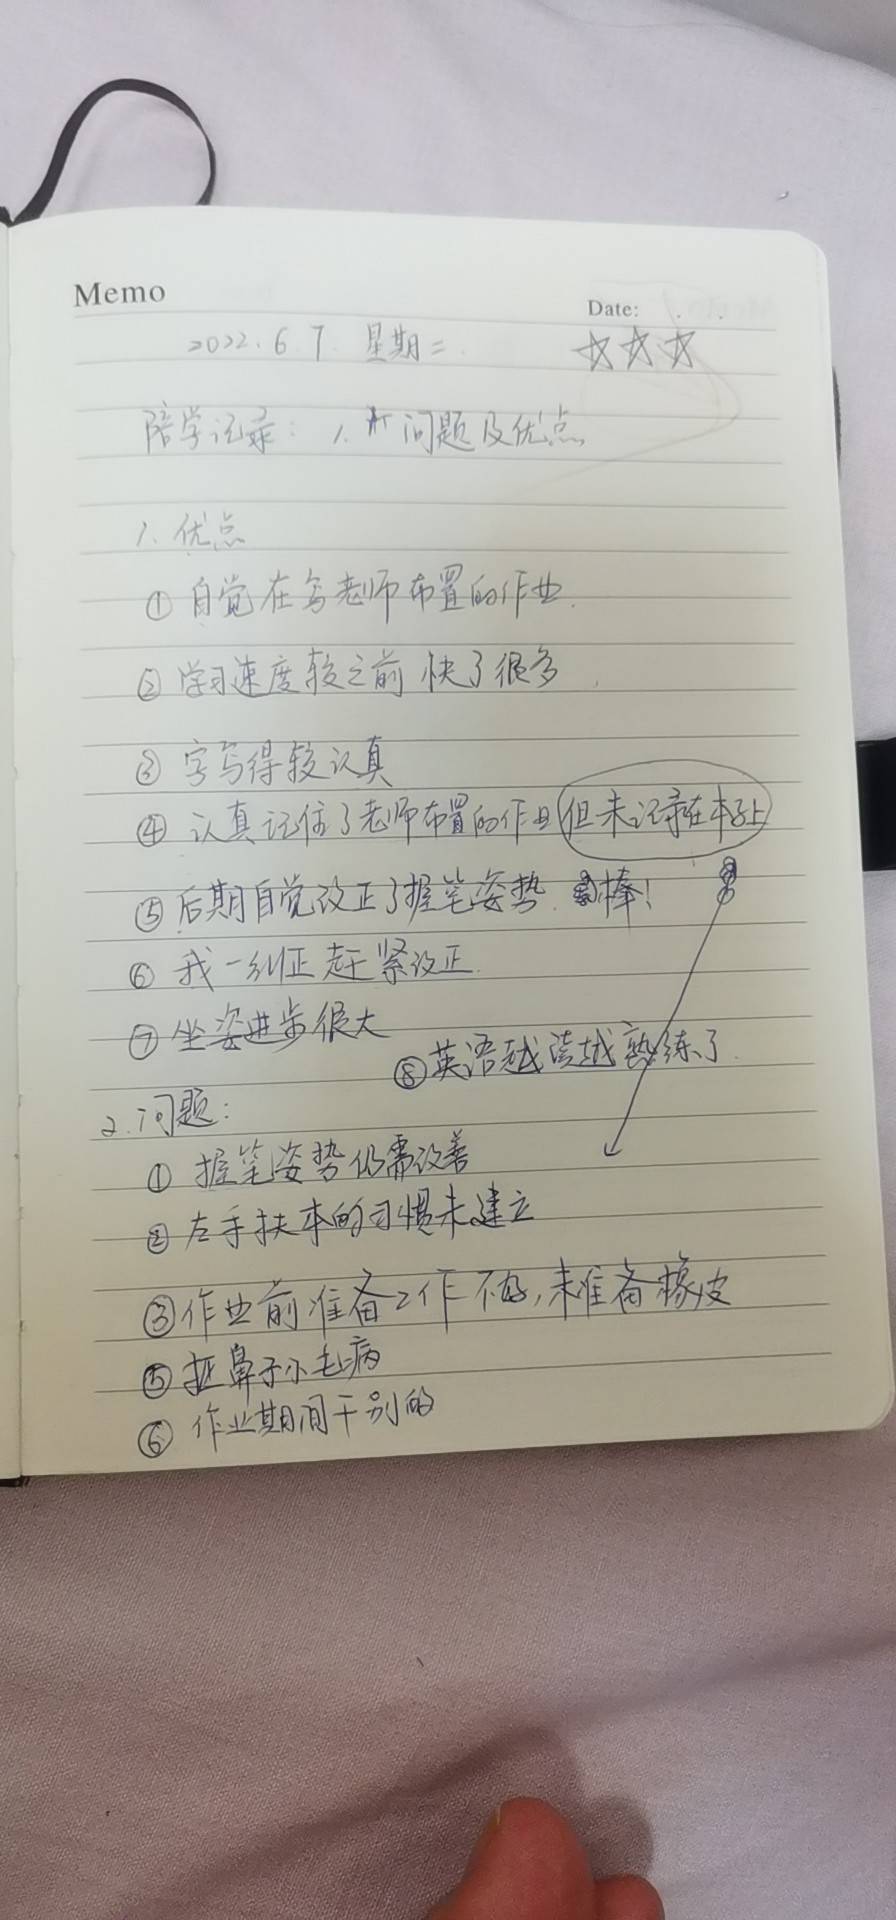 Memo
Date:
2022.6.7. 星期二. ☆☆☆
陪学记录: 1. 问题及优点
1. 优点
① 自觉在写老师布置的作业.
② 学习速度较之前快了很多.
③ 字写得较认真
④ 认真记住了老师布置的作业 但未记录在本子上
⑤ 后期自觉改正了握笔姿势. 棒!
⑥ 我一纠正赶紧改正.
⑦ 坐姿进步很大
⑧ 英语越读越熟练了.
2. 问题:
① 握笔姿势仍需改善
② 左手扶本的习惯未建立
③ 作业前准备工作不好,未准备橡皮
⑤ 抠鼻子小毛病
⑥ 作业期间干别的